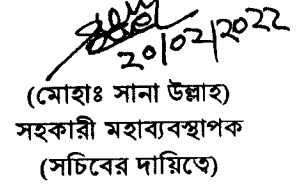 20/02/2022
(মোহাঃ সানা উল্লাহ)
সহকারী মহাব্যবস্থাপক
(সচিবের দায়িত্বে)